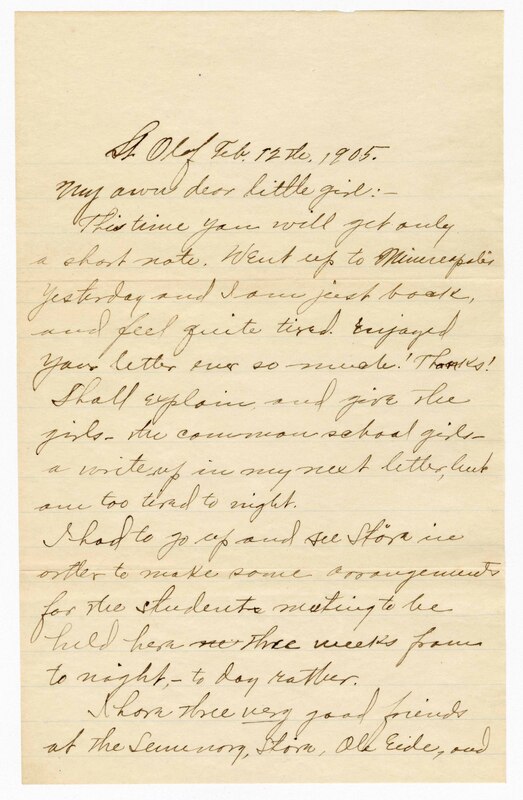 St Olaf Feb. 12th, 1905.
My own dear little girl:-
This time you will get only
a short note. Went up to Minneapolis
yesterday and I am just back,
and feel quite tired. Enjoyed
your letter ever so much! Thanks!
I shall explain and give the
girls - the common school girls -
a write up in my next letter, but
am too tired to night.
I had to go up and see Støra in
order to make some arrangements
for the students meeting to be
held here three weeks from
to night, - to day rather.
I have three very good friends
at the Seminary, Støra, Ola Eide, and